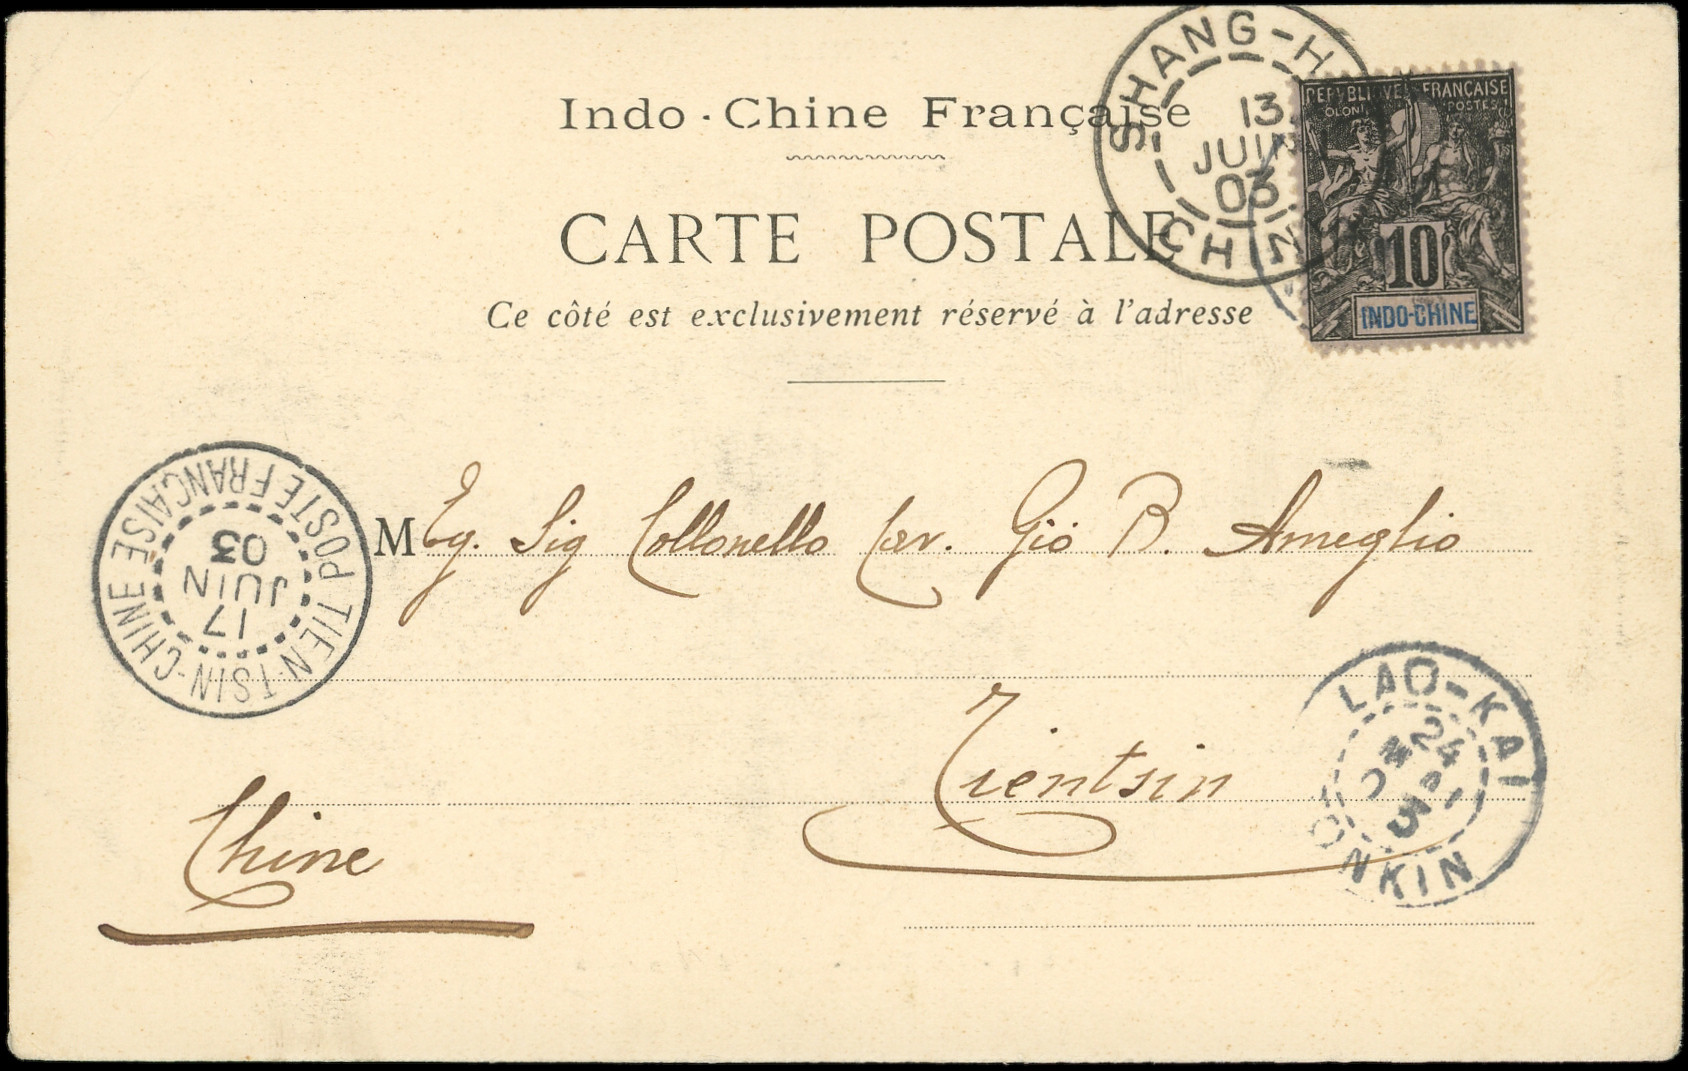 Indo-Chine Française
CARTE POSTALE
Ce côté est exclusivement réservé à l'adresse
SHANG-H
13
JUIN
03
CHIN
REPUBLIQUE FRANÇAISE
COLONIES POSTES
10
INDO-CHINE
M Eg. Sig Collonello Cav. Gio B. Ameglio
Tientsin
Chine
TIEN-TSIN-CHINE POSTE FRANÇAISE
17
JUIN
03
LAO-KAI
24
MAI
TONKIN